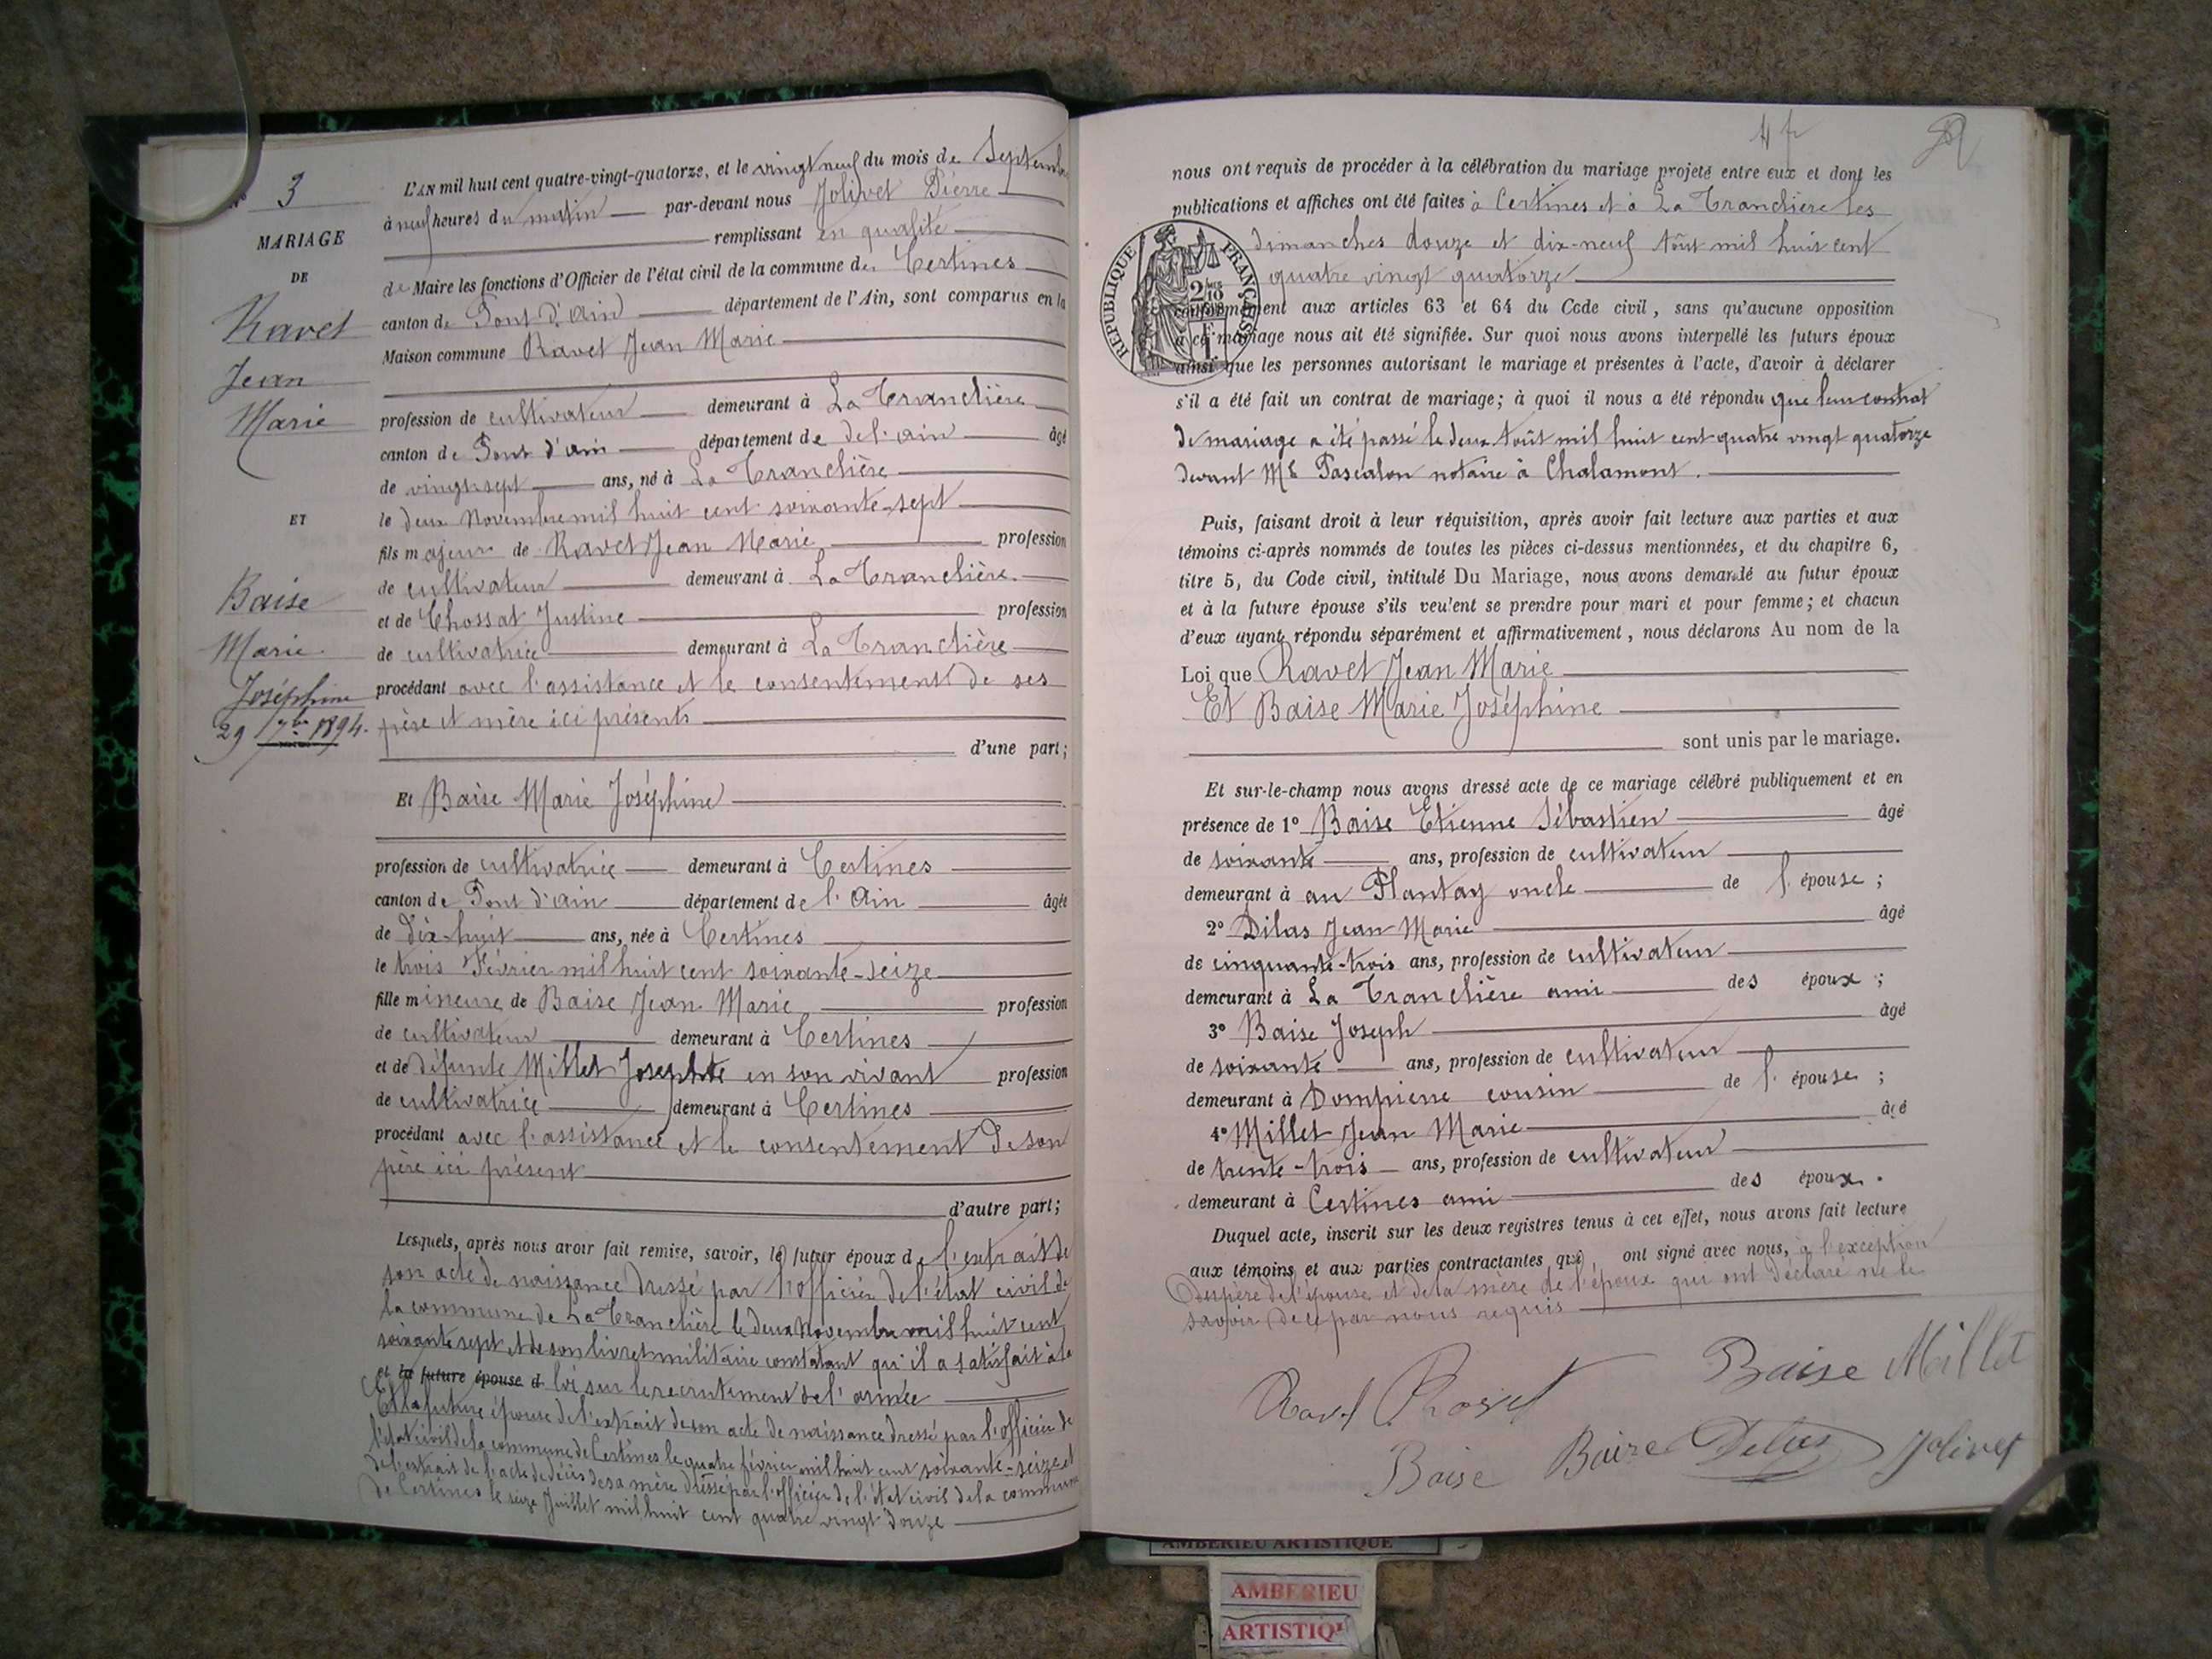 N° 3
MARIAGE
DE
Ravet
Jean
Marie
ET
Baise
Marie
Joséphine
29 7bre 1894.
L'AN mil huit cent quatre-vingt-quatorze, et le vingt neuf du mois de Septembre
à neuf heures du matin par-devant nous Jolivet Pierre
remplissant en qualité
de Maire les fonctions d'Officier de l'état civil de la commune de Certines
canton de Pont d'ain département de l'Ain, sont comparus en la
Maison commune Ravet Jean Marie
profession de cultivateur demeurant à La Tranclière
canton de Pont d'ain département de del'ain âgé
de vingt sept ans, né à La Tranclière
le deux Novembre mil huit cent soixante-sept
fils majeur de Ravet Jean Marie profession
de cultivateur demeurant à La Tranclière
et de Chossat Justine profession
de cultivatrice demeurant à La Tranclière
procédant avec l'assistance et le consentement de ses
père et mère ici présents
d'une part;
Et Baise Marie Joséphine
profession de cultivatrice demeurant à Certines
canton de Pont d'ain département de l'Ain âgée
de dix huit ans, née à Certines
le trois Février mil huit cent soixante-seize
fille mineure de Baise Jean Marie profession
de cultivateur demeurant à Certines
et de défunte Millet Josephte en son vivant profession
de cultivatrice demeurant à Certines
procédant avec l'assistance et le consentement de son
père ici présent
d'autre part;
Lesquels, après nous avoir fait remise, savoir, le futur époux de l'extrait de
son acte de naissance dressé par l'officier de l'état civil de
la commune de La Tranclière le deux Novembre mil huit cent
soixante sept et de son livret militaire constatant qu'il a satisfait à la
et la future épouse d loi sur le recrutement de l'armée
Et la future épouse de l'extrait de son acte de naissance dressé par l'officier de
l'état civil de la commune de Certines le quatre février mil huit cent soixante-seize et
de l'extrait de l'acte de décès de sa mère dressé par l'officier de l'état civil de la commune
de Certines le seize Juillet mil huit cent quatre vingt douze
nous ont requis de procéder à la célébration du mariage projeté entre eux et dont les
publications et affiches ont été faites à Certines et à La Tranclière les
dimanches douze et dix-neuf Août mil huit cent
quatre vingt quatorze
RÉPUBLIQUE FRANÇAISE
conformément aux articles 63 et 64 du Code civil, sans qu'aucune opposition
à ce mariage nous ait été signifiée. Sur quoi nous avons interpellé les futurs époux
ainsi que les personnes autorisant le mariage et présentes à l'acte, d'avoir à déclarer
s'il a été fait un contrat de mariage; à quoi il nous a été répondu que leur contrat
de mariage a été passé le deux Août mil huit cent quatre vingt quatorze
devant Me Pascalon notaire à Chalamont.
Puis, faisant droit à leur réquisition, après avoir fait lecture aux parties et aux
témoins ci-après nommés de toutes les pièces ci-dessus mentionnées, et du chapitre 6,
titre 5, du Code civil, intitulé Du Mariage, nous avons demandé au futur époux
et à la future épouse s'ils veulent se prendre pour mari et pour femme; et chacun
d'eux ayant répondu séparément et affirmativement, nous déclarons Au nom de la
Loi que Ravet Jean Marie
Et Baise Marie Joséphine
sont unis par le mariage.
Et sur-le-champ nous avons dressé acte de ce mariage célébré publiquement et en
présence de 1° Baise Etienne Sébastien âgé
de soixante ans, profession de cultivateur
demeurant à au Plantay oncle de l'épouse;
2° Dilas Jean Marie âgé
de cinquante-trois ans, profession de cultivateur
demeurant à La Tranclière ami des époux;
3° Baise Joseph âgé
de soixante ans, profession de cultivateur
demeurant à Dompierre cousin de l'épouse;
4° Millet Jean Marie âgé
de trente-trois ans, profession de cultivateur
demeurant à Certines ami des époux.
Duquel acte, inscrit sur les deux registres tenus à cet effet, nous avons fait lecture
aux témoins et aux parties contractantes qui ont signé avec nous, à l'exception
du père de l'épouse et de la mère de l'époux qui ont déclaré ne le
savoir de ce par nous requis
Baise Millet
Ravet
Baise Baise Delas Jolivet
AMBERIEU ARTISTIQUE
AMBERIEU
ARTISTIQU